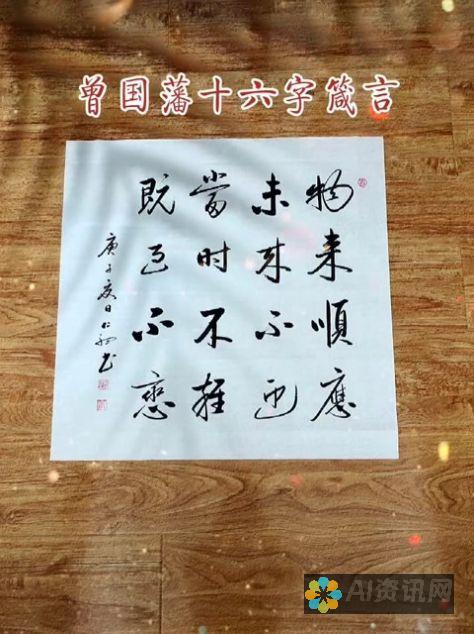 曾国藩十六字箴言
物来順應
未来不迎
當时不雜
既过不恋
庚子夏日书
AI资讯网